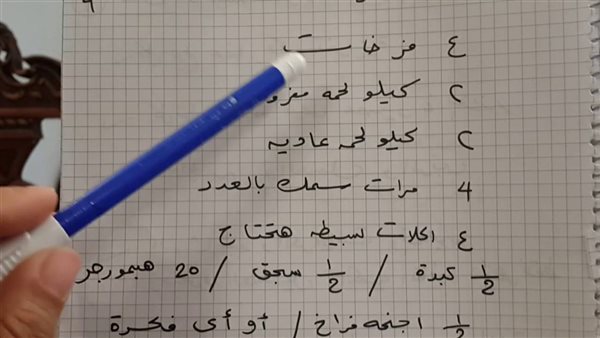 ٤ فرخات
٢ كيلو لحمه مفرو
٢ كيلو لحمه عاديه
4 مرات سمك بالعدد
٤ اكلات بسيطه هتحتاج
1/2 كبدة / 1/2 سجق / 20 هيمبورجر
1/2 اجنحه فراخ / أو أى فكرة